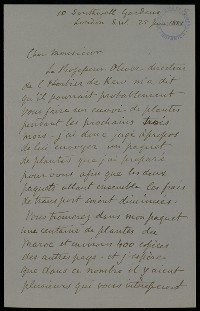 10 Southwell Gardens
London S.W. 20 juin 1888
Cher Monsieur
Le Professeur Oliver directeur
de l'Herbier de Kew m'a dit
qu'il pourrait probablement
vous faire un envoi de plantes
pendant les prochains trois
mois - j'ai donc jugé apropos
de lui envoyer un paquet
de plantes que j'ai préparé
pour vous afin que les deux
paquets allant ensemble les frais
de transport soient diminués.
Vous trouverez dans mon paquet
une centaine de plantes du
Maroc et environ 400 espèces
des autres pays - et j'espère
que dans ce nombre il y aient
plusieurs qui vous intéressent